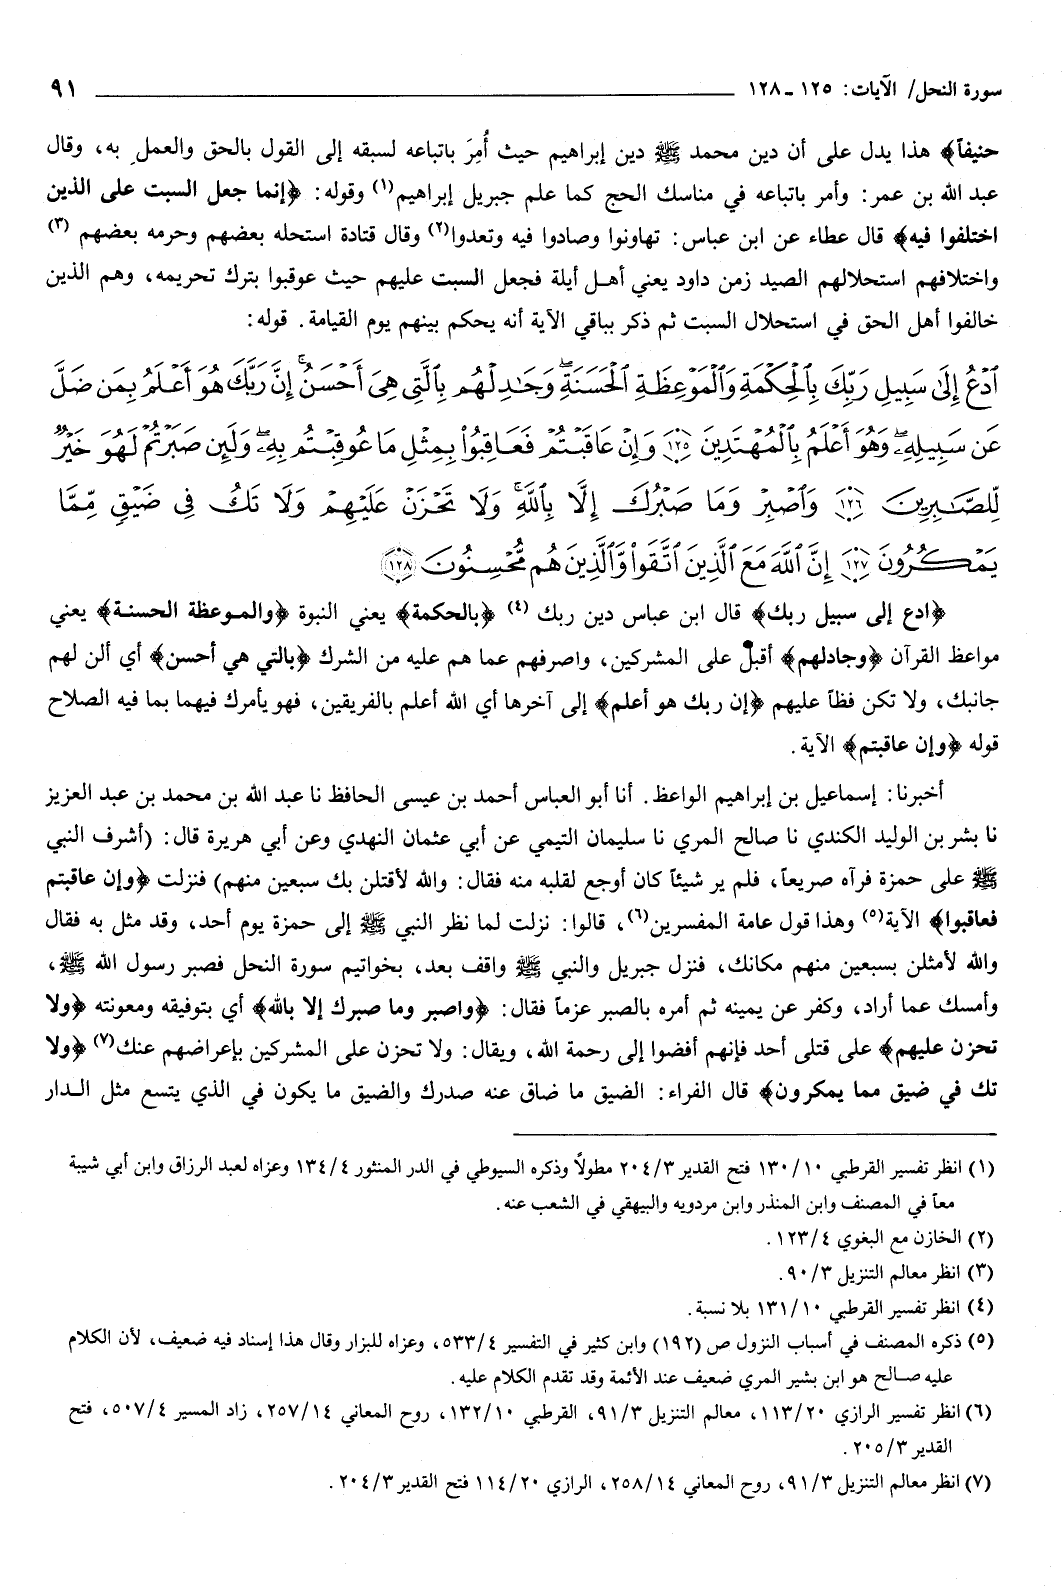 سورة النحل/ الآيات: ١٢٥ ـ ١٢٨ ٩١
حنيفاً﴾ هذا يدل على أن دين محمد ﷺ دين إبراهيم حيث أُمِرَ باتباعه لسبقه إلى القول بالحق والعمل به، وقال
عبد الله بن عمر: وأمر باتباعه في مناسك الحج كما علم جبريل إبراهيم(١) وقوله: ﴿إنما جعل السبت على الذين
اختلفوا فيه﴾ قال عطاء عن ابن عباس: تهاونوا وصادوا فيه وتعدوا(٢) وقال قتادة استحله بعضهم وحرمه بعضهم (٣)
واختلافهم استحلالهم الصيد زمن داود يعني أهل أيلة فجعل السبت عليهم حيث عوقبوا بترك تحريمه، وهم الذين
خالفوا أهل الحق في استحلال السبت ثم ذكر بباقي الآية أنه يحكم بينهم يوم القيامة. قوله:
ٱدۡعُ إِلَىٰ سَبِيلِ رَبِّكَ بِٱلۡحِكۡمَةِ وَٱلۡمَوۡعِظَةِ ٱلۡحَسَنَةِۖ وَجَٰدِلۡهُم بِٱلَّتِي هِيَ أَحۡسَنُۚ إِنَّ رَبَّكَ هُوَ أَعۡلَمُ بِمَن ضَلَّ
عَن سَبِيلِهِۦ وَهُوَ أَعۡلَمُ بِٱلۡمُهۡتَدِينَ ١٢٥ وَإِنۡ عَاقَبۡتُمۡ فَعَاقِبُواْ بِمِثۡلِ مَا عُوقِبۡتُم بِهِۦۖ وَلَئِن صَبَرۡتُمۡ لَهُوَ خَيۡرٞ
لِّلصَّٰبِرِينَ ١٢٦ وَٱصۡبِرۡ وَمَا صَبۡرُكَ إِلَّا بِٱللَّهِۚ وَلَا تَحۡزَنۡ عَلَيۡهِمۡ وَلَا تَكُ فِي ضَيۡقٖ مِّمَّا
يَمۡكُرُونَ ١٢٧ إِنَّ ٱللَّهَ مَعَ ٱلَّذِينَ ٱتَّقَواْ وَّٱلَّذِينَ هُم مُّحۡسِنُونَ ١٢٨
﴿ادع إلى سبيل ربك﴾ قال ابن عباس دين ربك (٤) ﴿بالحكمة﴾ يعني النبوة ﴿والموعظة الحسنة﴾ يعني
مواعظ القرآن ﴿وجادلهم﴾ أقبل على المشركين، واصرفهم عما هم عليه من الشرك ﴿بالتي هي أحسن﴾ أي ألن لهم
جانبك، ولا تكن فظاً عليهم ﴿إن ربك هو أعلم﴾ إلى آخرها أي الله أعلم بالفريقين، فهو يأمرك فيهما بما فيه الصلاح
قوله ﴿وإن عاقبتم﴾ الآية.
أخبرنا: إسماعيل بن إبراهيم الواعظ. أنا أبو العباس أحمد بن عيسى الحافظ نا عبد الله بن محمد بن عبد العزيز
نا بشر بن الوليد الكندي نا صالح المري نا سليمان التيمي عن أبي عثمان النهدي وعن أبي هريرة قال: (أشرف النبي
ﷺ على حمزة فرآه صريعاً، فلم ير شيئاً كان أوجع لقلبه منه فقال: والله لأقتلن بك سبعين منهم) فنزلت ﴿وإن عاقبتم
فعاقبوا﴾ الآية(٥) وهذا قول عامة المفسرين(٦)، قالوا: نزلت لما نظر النبي ﷺ إلى حمزة يوم أحد، وقد مثل به فقال
والله لأمثلن بسبعين منهم مكانك، فنزل جبريل والنبي ﷺ واقف بعد، بخواتيم سورة النحل فصبر رسول الله ﷺ،
وأمسك عما أراد، وكفر عن يمينه ثم أمره بالصبر عزماً فقال: ﴿واصبر وما صبرك إلا بالله﴾ أي بتوفيقه ومعونته ﴿ولا
تحزن عليهم﴾ على قتلى أحد فإنهم أفضوا إلى رحمة الله، ويقال: ولا تحزن على المشركين بإعراضهم عنك(٧) ﴿ولا
تك في ضيق مما يمكرون﴾ قال الفراء: الضيق ما ضاق عنه صدرك والضيق ما يكون في الذي يتسع مثل الدار
(١) انظر تفسير القرطبي ١٣٠/١٠ فتح القدير ٢٠٤/٣ مطولاً وذكره السيوطي في الدر المنثور ١٣٤/٤ وعزاه لعبد الرزاق وابن أبي شيبة
معاً في المصنف وابن المنذر وابن مردويه والبيهقي في الشعب عنه.
(٢) الخازن مع البغوي ١٢٣/٤.
(٣) انظر معالم التنزيل ٩٠/٣.
(٤) انظر تفسير القرطبي ١٣١/١٠ بلا نسبة.
(٥) ذكره المصنف في أسباب النزول ص (١٩٢) وابن كثير في التفسير ٥٣٣/٤، وعزاه للبزار وقال هذا إسناد فيه ضعيف، لأن الكلام
عليه صالح هو ابن بشير المري ضعيف عند الأئمة وقد تقدم الكلام عليه.
(٦) انظر تفسير الرازي ١١٣/٢٠، معالم التنزيل ٩١/٣، القرطبي ١٣٢/١٠، روح المعاني ٢٥٧/١٤، زاد المسير ٥٠٧/٤، فتح
القدير ٢٠٥/٣.
(٧) انظر معالم التنزيل ٩١/٣، روح المعاني ٢٥٨/١٤، الرازي ١١٤/٢٠ فتح القدير ٢٠٤/٣.